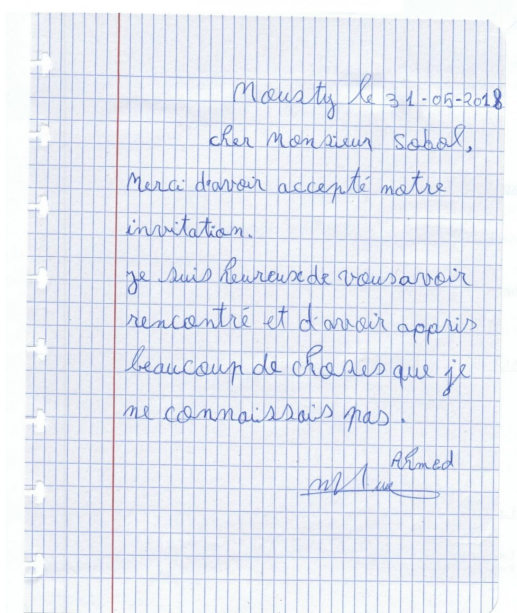 Mousty le 31-05-2018
cher Monsieur Sobol,
Merci d'avoir accepté notre
invitation.
Je suis heureuse de vous avoir
rencontré et d'avoir appris
beaucoup de choses que je
ne connaissais pas.
Ahmed